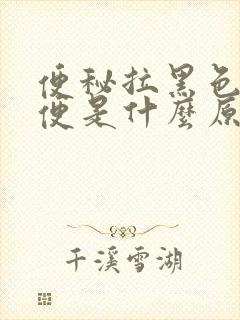 便秘拉黑色
便是什麼原
千溪雪湖